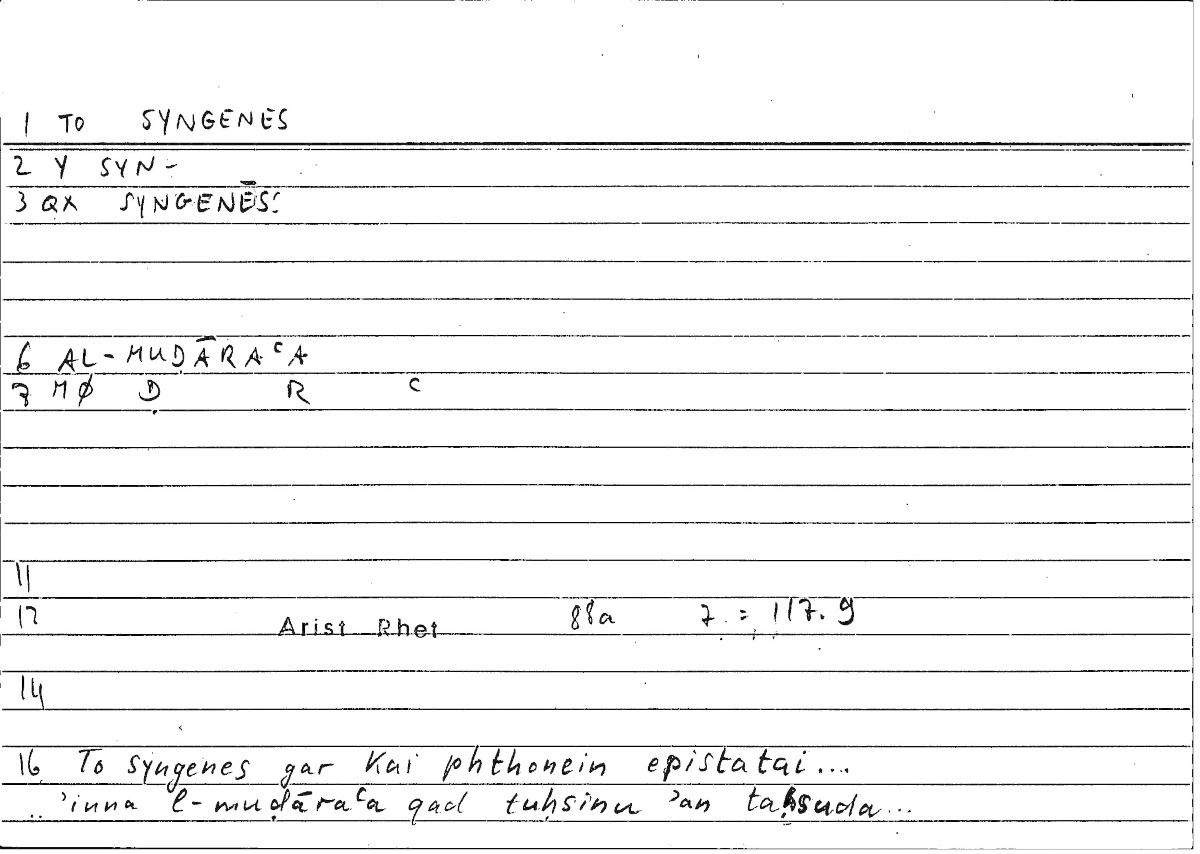 1 TO SYNGENES
2 Y SYN-
3 QX SYNGENĒS:
6 AL-MUḌĀRAʿA
7 MØ Ḍ R ʿ
11
12 Arist Rhet 88a 7 = 117.9
14
16 To syngenes gar kai phthonein epistatai...
ʾinna l-muḍāraʿa qad tuḥsinu ʾan taḥsuda...